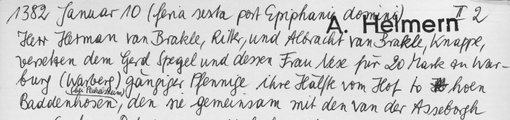 1382 Januar 10 (feria sexta post Epiphanie domini) II 2
A. Helmern
Herr Herman van Brakle, Ritter, und Albracht van Brakle, Knappe,
versetzen dem Gerd Spegel und dessen Frau Nese für 20 Mark zu War-
burg (Warberg) gängiger Pfennige ihre Hälfte vom Hof to hoen
(bei Peckelsheim)
Baddenhosen, den sie gemeinsam mit den van der Asseborgh